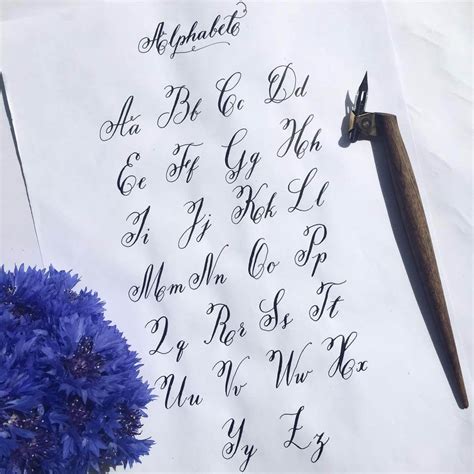 Alphabet
Aa Bb Cc Dd
Ee Ff Gg Hh
Ii Jj Kk Ll
Mm Nn Oo Pp
Qq Rr Ss Tt
Uu Vv Ww Xx
Yy Zz